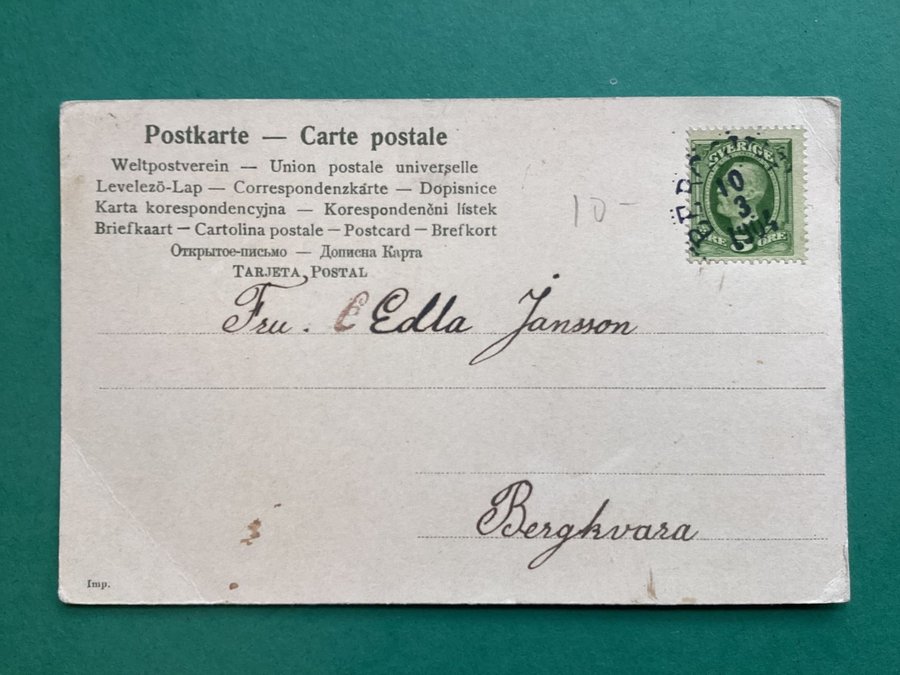 Postkarte — Carte postale
Weltpostverein — Union postale universelle
Levelező-Lap — Correspondenzkárte — Dopisnice
Karta korespondencyjna — Korespondenčni lístek
Briefkaart — Cartolina postale — Postcard — Brefkort
Открытое-письмо — Дописна Карта
TARJETA POSTAL
10-
SVERIGE
10
3
1904
5 ÖRE
Fru. Edla Jansson
Bergkvara
Imp.